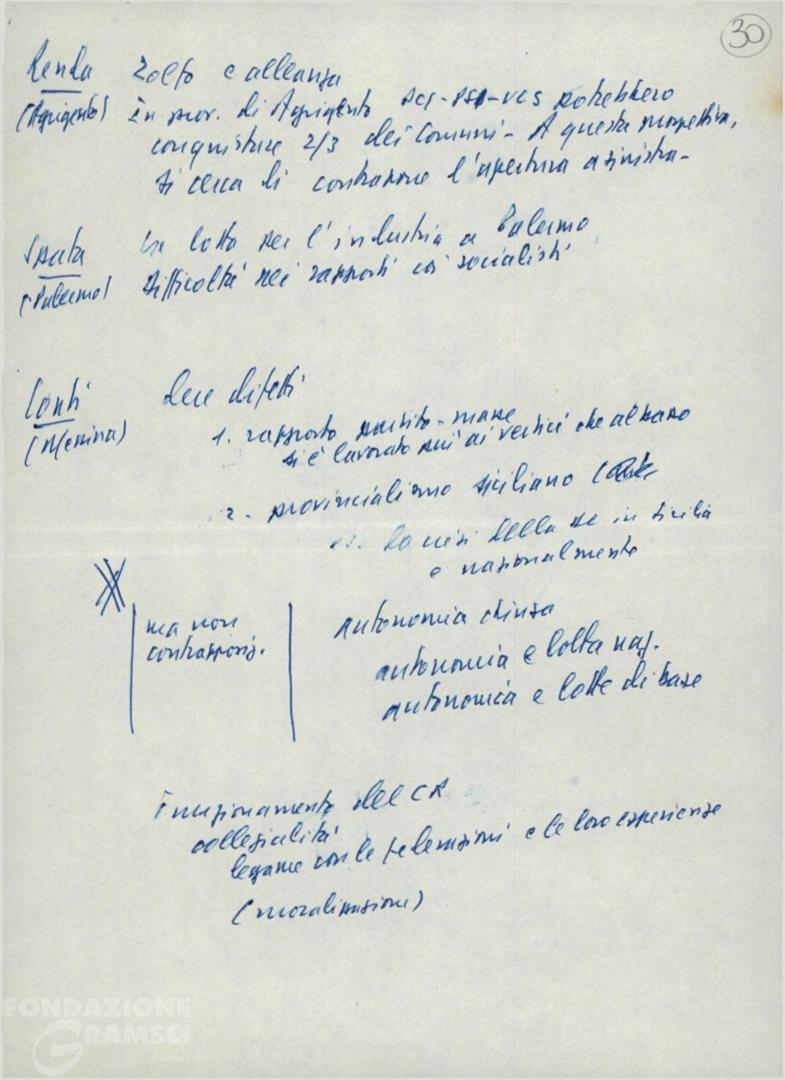 30
Renda Zolfo e alleanza
(Agrigento) In prov. di Agrigento PCI-PSI-UCS potrebbero
conquistare 2/3 dei Comuni - A questa prospettiva,
si cerca di contrapporre l'apertura a sinistra -
La lotta per l'industria a Palermo
(Palermo) difficoltà nei rapporti coi socialisti
Conti due difetti
(Messina) 1. rapporto partito-masse
si è lavorato più ai vertici che al basso
2. provincialismo siciliano
la crisi della DC in Sicilia
e nazionalmente
ma non
contrappos.
autonomia chiusa
autonomia e lotta naz.
autonomia e lotte di base
Funzionamento del CR
collegialità
legame con le federazioni e le loro esperienze
(moralizzazione)
FONDAZIONE
GRAMSCI
onlus